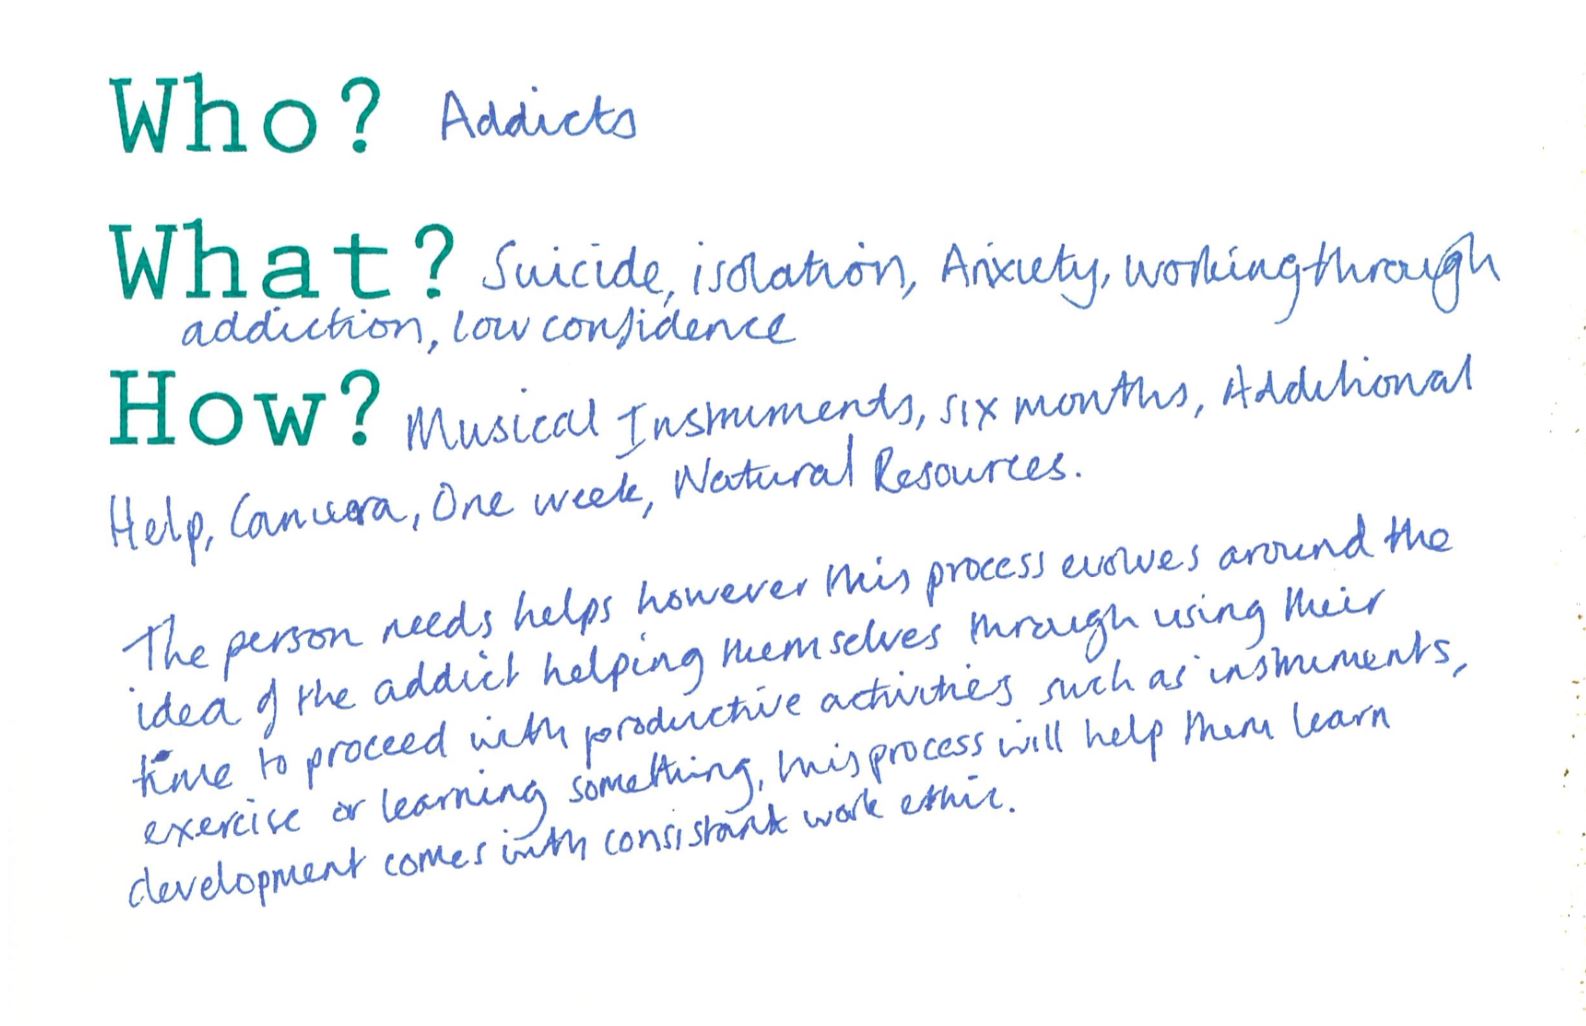 Who? Addicts
What? Suicide, isolation, Anxiety, working through
addiction, low confidence
How? Musical Instruments, six months, Additional
Help, Camera, One week, Natural Resources.
The person needs helps however this process evolves around the
idea of the addict helping themselves through using their
time to proceed with productive activities such as instruments,
exercise or learning something, this process will help them learn
development comes with consistant work ethic.